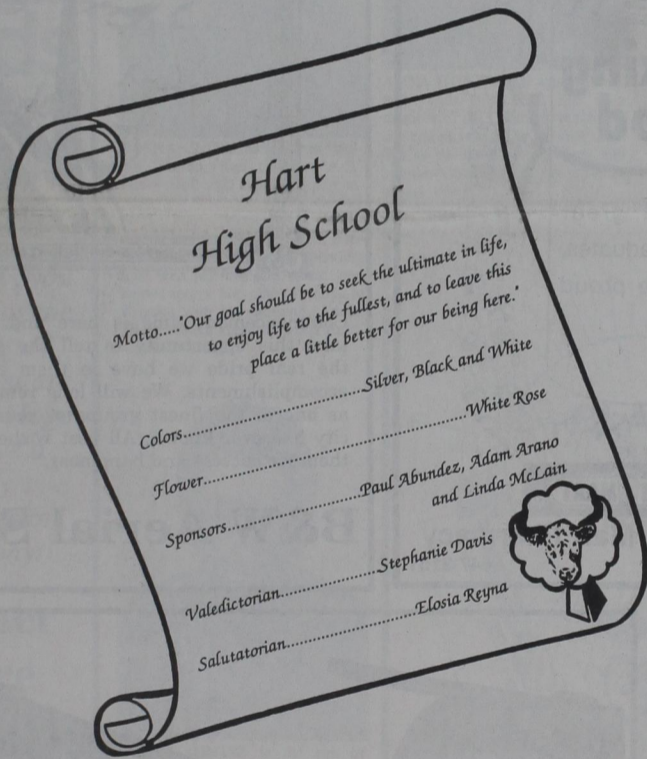 Hart
High School
Motto....."Our goal should be to seek the ultimate in life,
to enjoy life to the fullest, and to leave this
place a little better for our being here."
Colors........................................Silver, Black and White
Flower..........................................................White Rose
Sponsors..............................Paul Abundez, Adam Arano
and Linda McLain
Valedictorian......................Stephanie Davis
Salutatorian............................Elosia Reyna